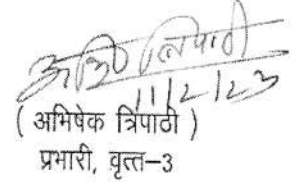 अभि त्रिपाठी
11/2/23
( अभिषेक त्रिपाठी )
प्रभारी, वृत्त-3